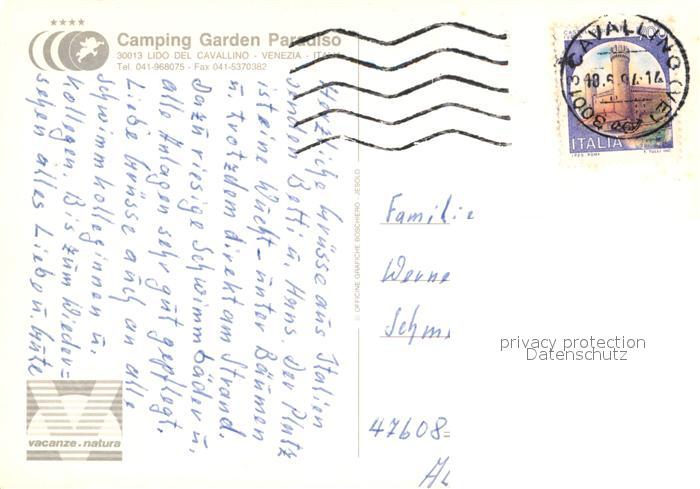 Camping Garden Paradiso
30013 LIDO DEL CAVALLINO - VENEZIA - ITALIA
Tel. 041-968075 - Fax 041-5370382
Herzliche Grüsse aus Italien
senden Betti u. Hans. Der Platz
ist eine Wucht - unter Bäumen
u. trotzdem direkt am Strand.
Dazu riesige Schwimmbäder u.
alle Anlagen sehr gut gepflegt.
Liebe Grüsse auch an alle
Schwimmkolleginnen u.
Kollegen. Bis zum Wieder=
sehen alles Liebe u. Gute
vacanze.natura
© OFFICINE GRAFICHE BOSCHIERO - JESOLO
CAVALLINO (VE)
18.6.94.14
ITALIA
Familie
Werne
Schm
47608=
privacy protection
Datenschutz